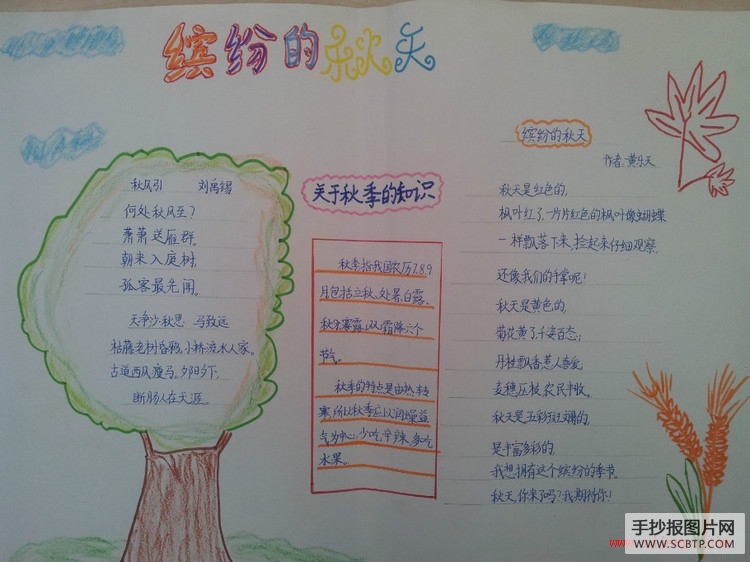 缤纷的秋天
秋风引 刘禹锡
何处秋风至？
萧萧送雁群。
朝来入庭树，
孤客最先闻。
天净沙秋思 马致远
枯藤老树昏鸦，小桥流水人家。
古道西风瘦马。夕阳西下，
断肠人在天涯。
关于秋季的知识
秋季指我国农历7.8.9
月包括立秋、处暑、白露、
秋分寒露、以及霜降六个
节气。
秋季的特点是由热转
寒，所以秋季应以润燥益
气为中心，少吃辛辣，多吃
水果。
缤纷的秋天
作者：黄乐天
秋天是红色的，
枫叶红了，一片片红色的枫叶像蝴蝶
一样飘落下来，捡起来仔细观察，
还像我们的手掌呢！
秋天是黄色的，
菊花黄了，千姿百态；
丹桂飘香，惹人喜爱；
麦穗压枝，农民丰收。
秋天是五彩斑斓的，
是丰富多彩的。
我想拥有这个缤纷的季节。
秋天，你来了吗？我期待你！
手抄报图片网
WWW.SCBTP.COM